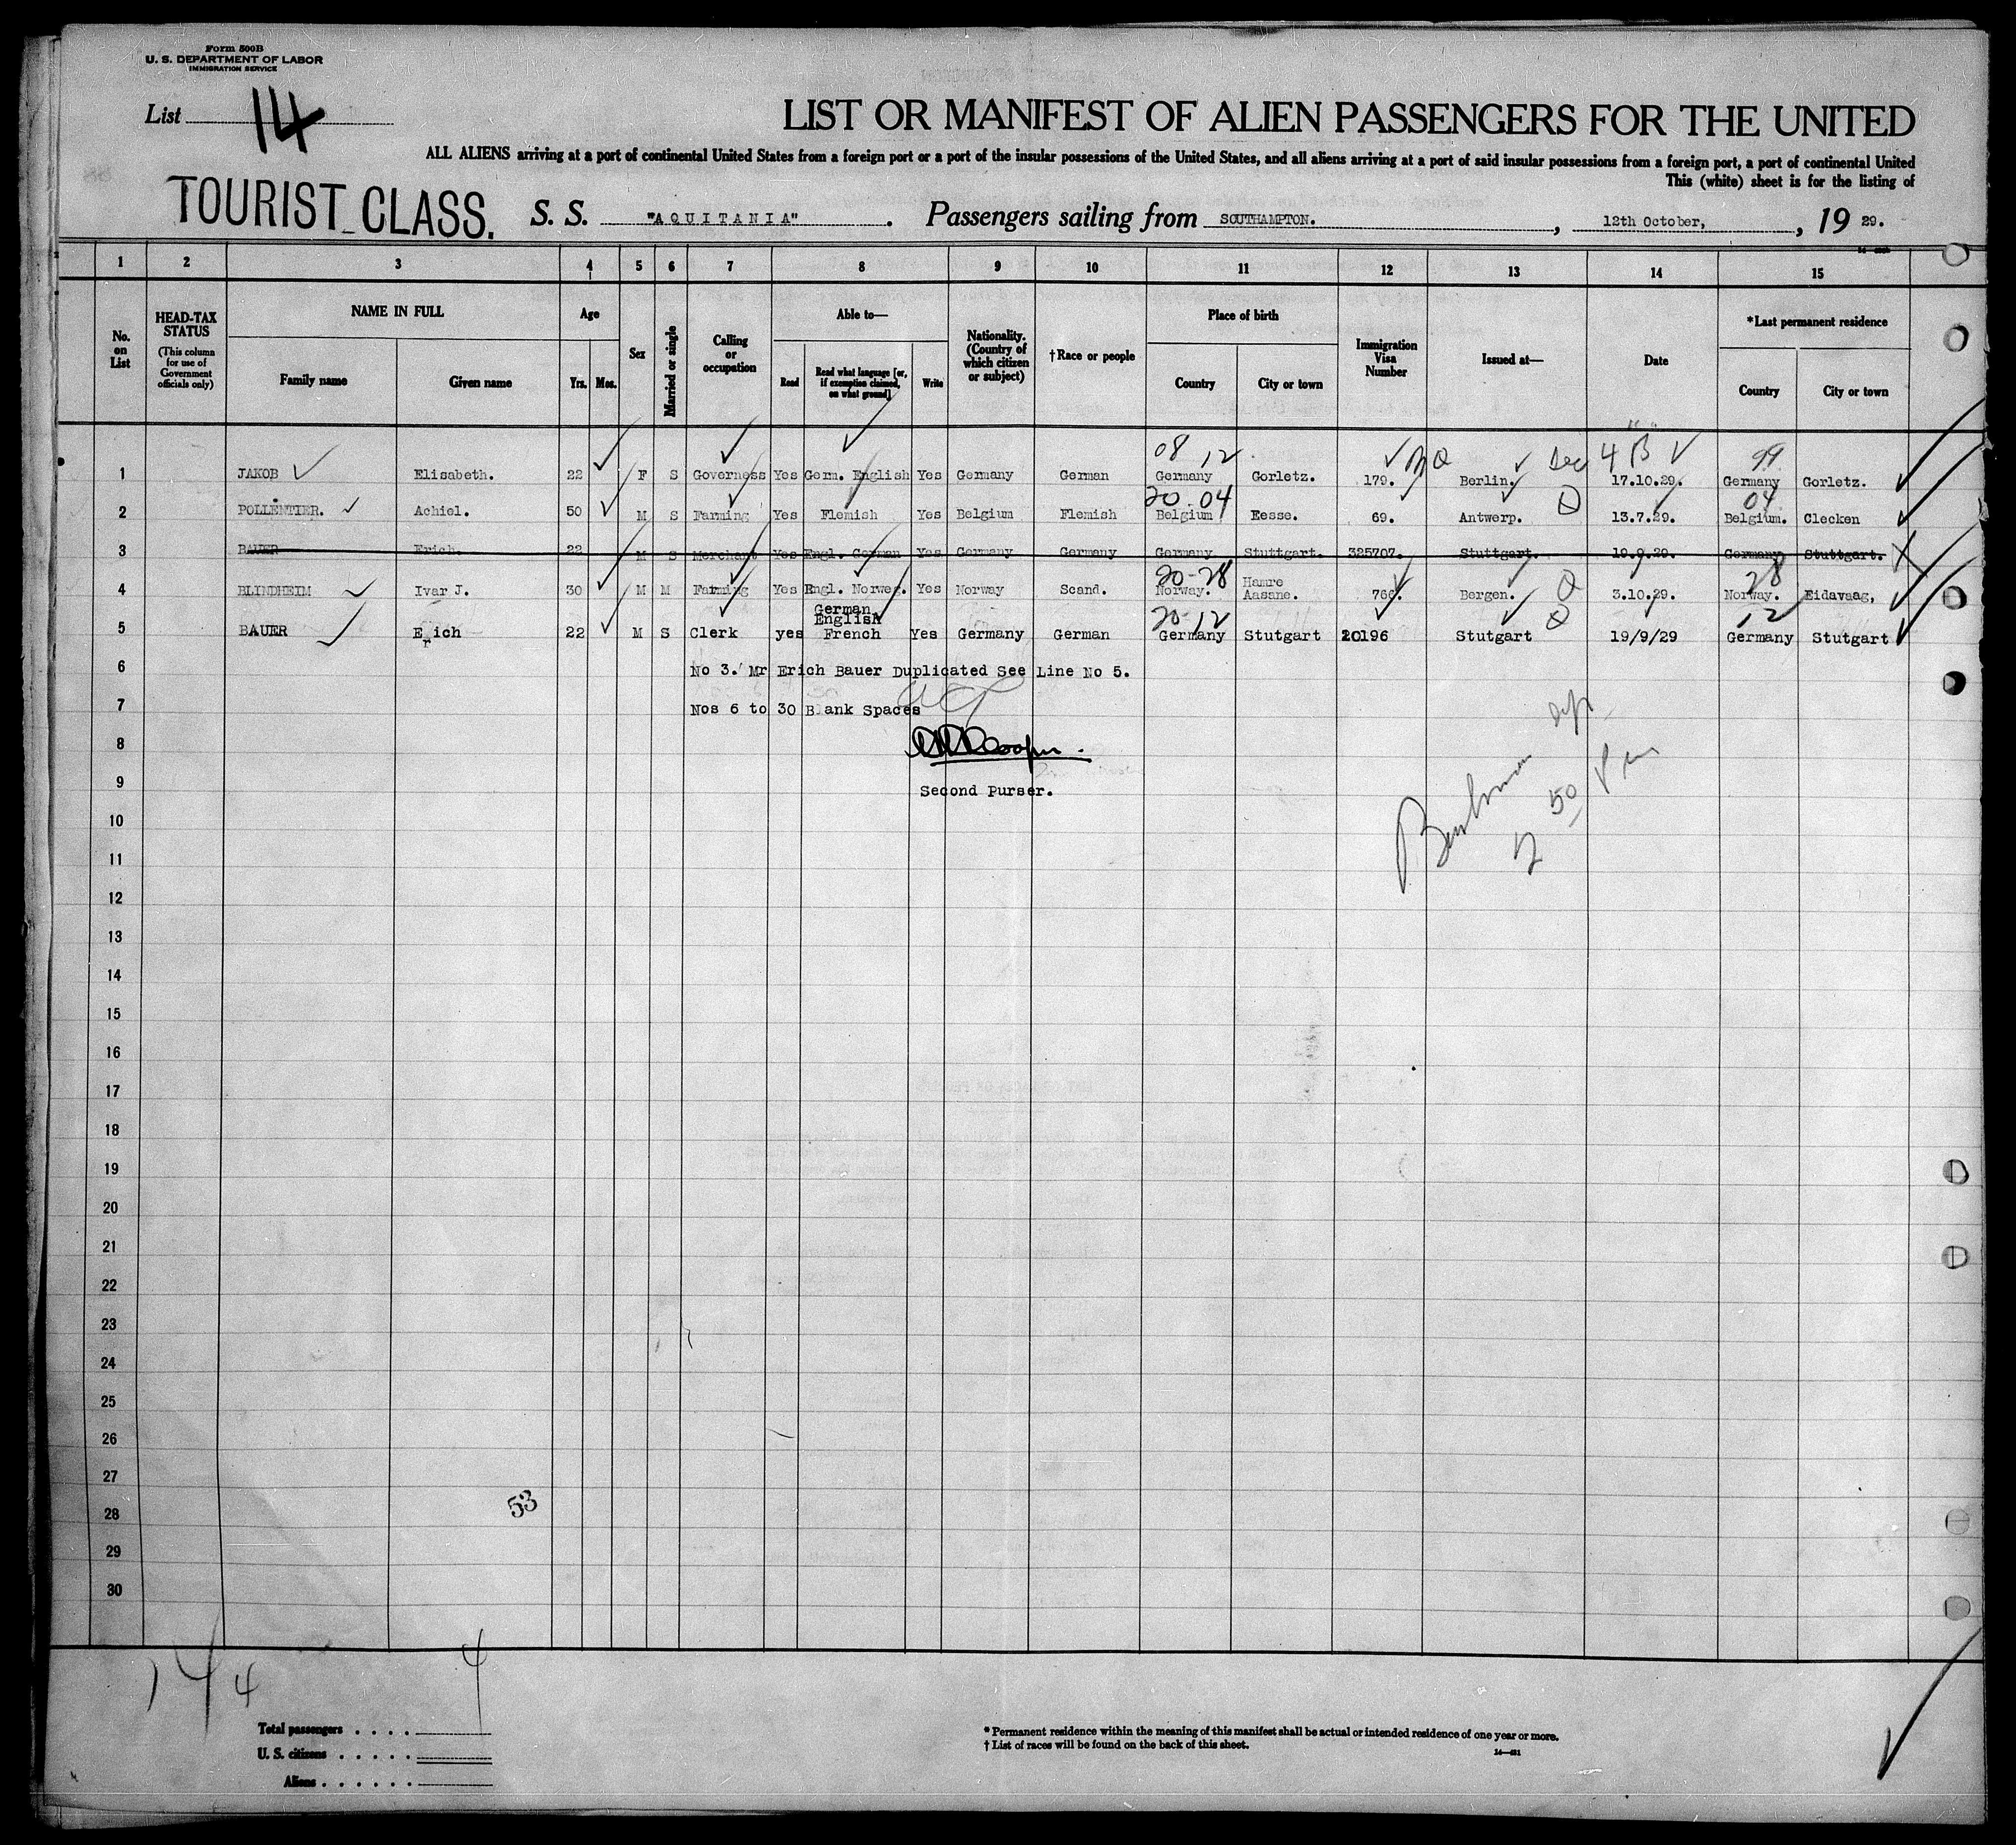 Form 500B
U. S. DEPARTMENT OF LABOR
IMMIGRATION SERVICE
List 14
LIST OR MANIFEST OF ALIEN PASSENGERS FOR THE UNITED
ALL ALIENS arriving at a port of continental United States from a foreign port or a port of the insular possessions of the United States, and all aliens arriving at a port of said insular possessions from a foreign port, a port of continental United
This (white) sheet is for the listing of
TOURIST CLASS. S. S. "AQUITANIA". Passengers sailing from SOUTHAMPTON. , 12th October, , 19 29.
1 2 3 4 5 6 7 8 9 10 11 12 13 14 15
No. on List
HEAD-TAX STATUS
(This column for use of Government officials only)
NAME IN FULL
Family name Given name
Age
Yrs. Mos.
Sex
Married or single
Calling or occupation
Able to—
Read
Read what language [or, if exemption claimed, on what ground]
Write
Nationality. (Country of which citizen or subject)
†Race or people
Place of birth
Country City or town
Immigration Visa Number
Issued at—
Date
*Last permanent residence
Country City or town
08 12 4 B 99
1 JAKOB Elisabeth. 22 F S Governess Yes Germ. English Yes Germany German Germany Gorletz. 179. Berlin. 17.10.29. Germany Gorletz.
20 04 04
2 POLLENTIER. Achiel. 50 M S Farming Yes Flemish Yes Belgium Flemish Belgium Eesse. 69. Antwerp. 13.7.29. Belgium. Clecken
3 BAUER Erich. 22 M S Merchant Yes Engl. German Yes Germany Germany Germany Stuttgart. 325707. Stuttgart. 19.9.29. Germany Stuttgart. X
20-28 28
4 BLINDHEIM Ivar J. 30 M M Farming Yes Engl. Norweg. Yes Norway Scand. Norway. Hamre Aasane. 760. Bergen. 3.10.29. Norway. Eidavaag,
20-12 12
5 BAUER Erich 22 M S Clerk yes German English French Yes Germany German Germany Stutgart 20196 Stutgart 19/9/29 Germany Stutgart
6 No 3. Mr Erich Bauer Duplicated See Line No 5.
7 Nos 6 to 30 Blank Spaces
8
9 Second Purser.
10
11
12
13
14
15
16
17
18
19
20
21
22
23
24
25
26
27
28 53
29
30
14 4 4
Total passengers . . . .
U. S. citizens . . . . .
Aliens . . . . . .
* Permanent residence within the meaning of this manifest shall be actual or intended residence of one year or more.
† List of races will be found on the back of this sheet.